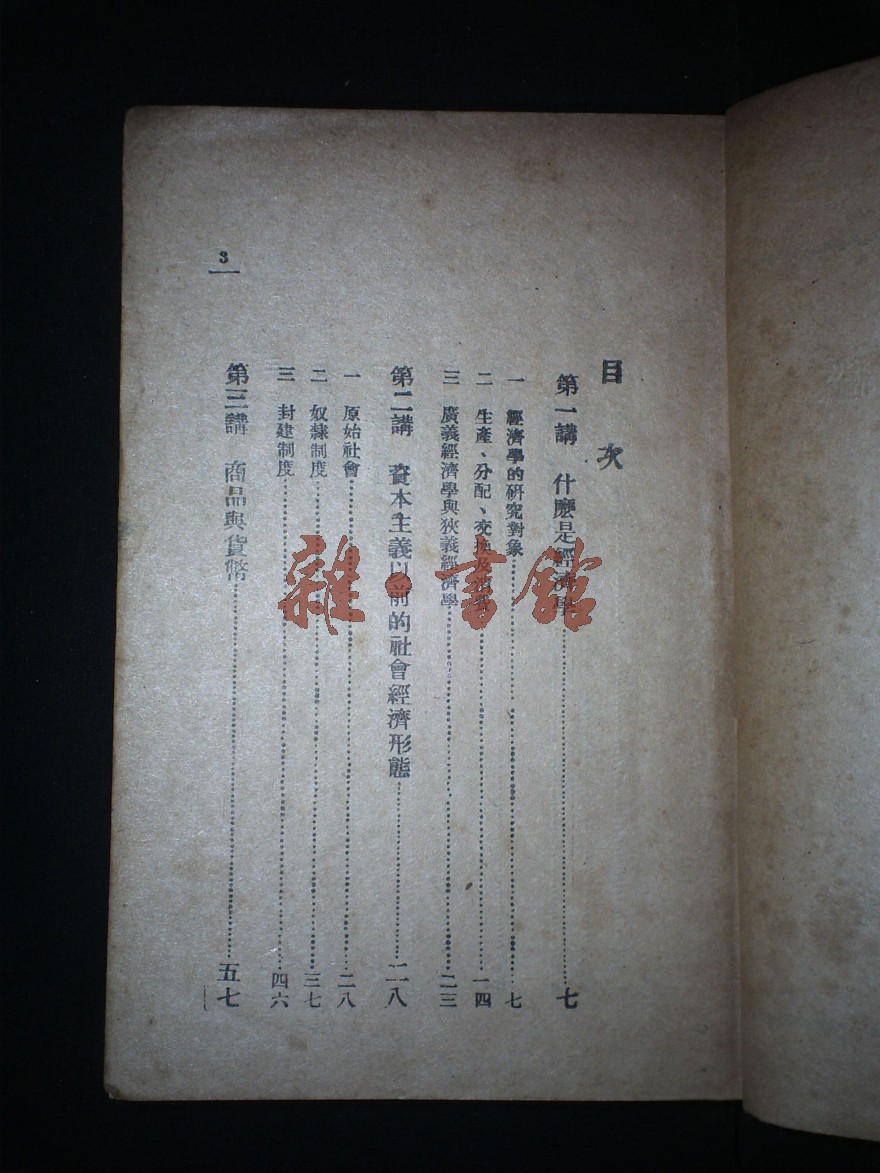 目次
第一講　什麽是經濟學……七
一　經濟學的研究對象……七
二　生產、分配、交換及消費……一四
三　廣義經濟學與狹義經濟學……二三
第二講　資本主義以前的社會經濟形態……二八
一　原始社會……二八
二　奴隸制度……三七
三　封建制度……四六
第三講　商品與貨幣……五七
3
雜·書館